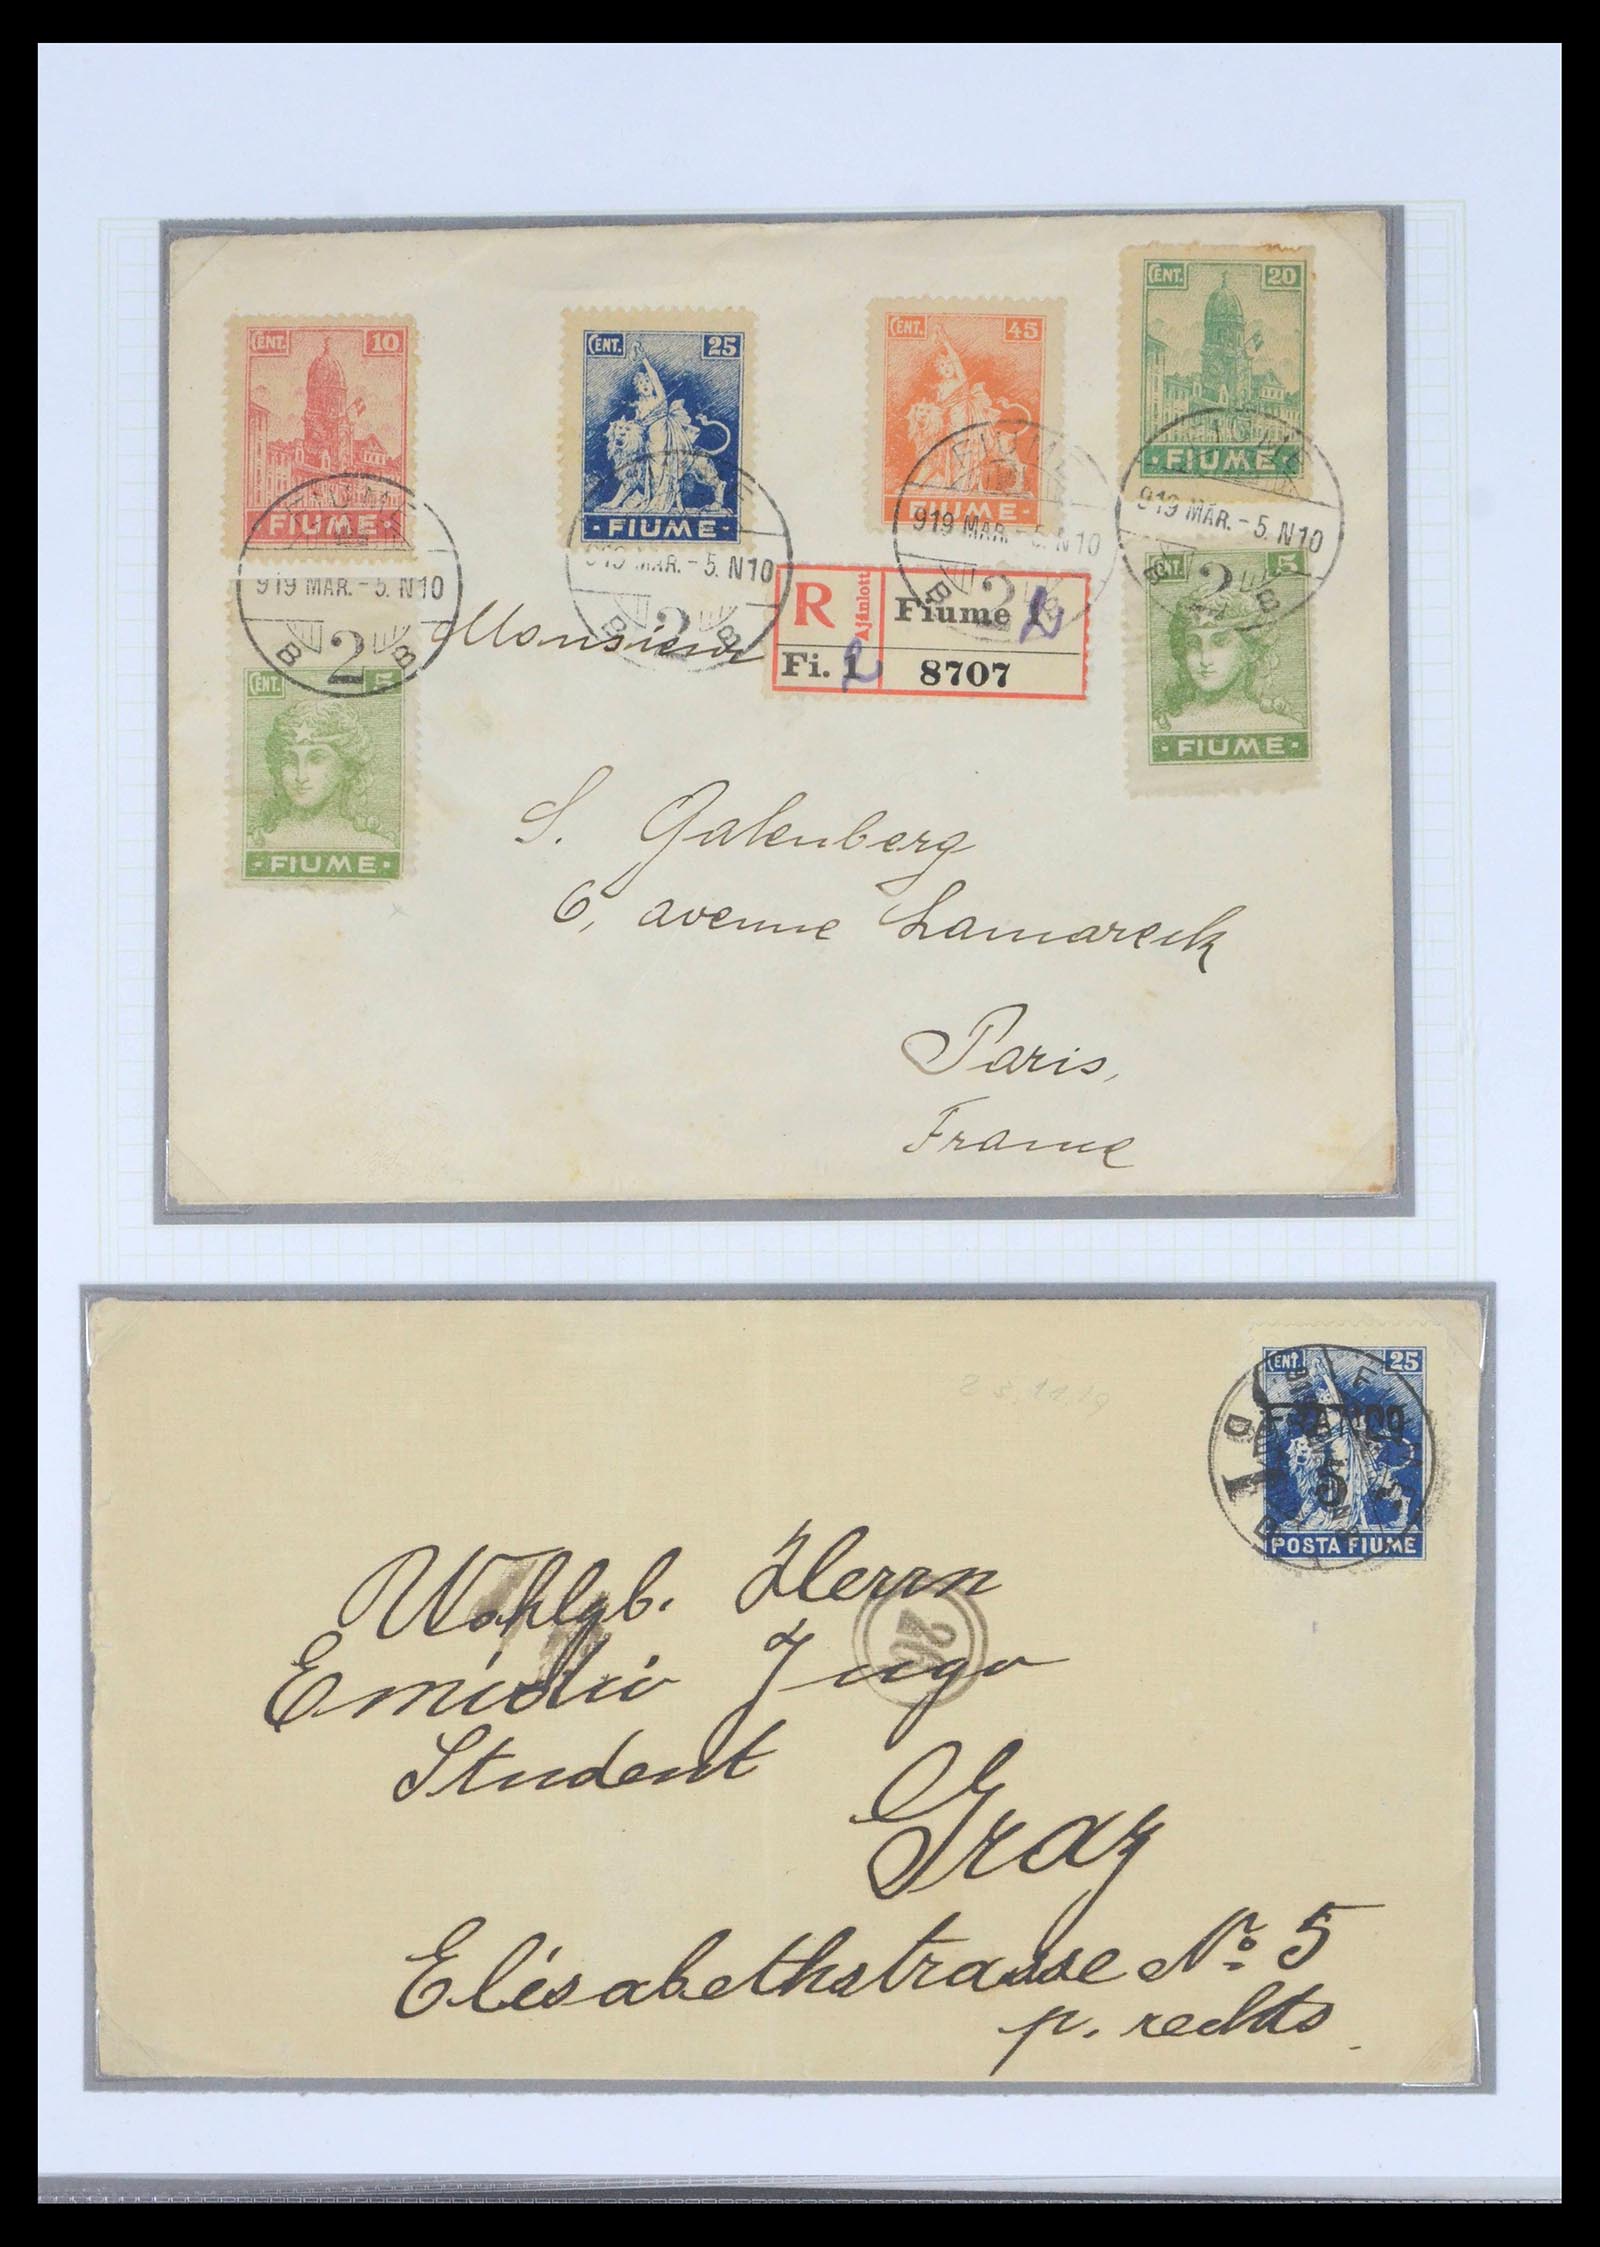 CENT. 20
FIUME
CENT. 10
FIUME
CENT. 25
FIUME
CENT. 45
FIUME
FIUME
919 MAR. - 5. N10
B 2 B
FIUME
919 MAR. - 5. N10
B 2 B
FIUME
919 MAR. - 5. N10
B 2 B
FIUME
919 MAR. - 5. N10
2 B
CENT. 5
FIUME
CENT. 5
FIUME
R Ajánlott Fiume 1 2
Fi. 1 2 8707
Monsieur
S. Galenberg
6, avenue Lamarck
Paris,
France
23.11.19
CENT. 25
FRANCO
5
POSTA FIUME
Wohlgb. Herrn
26
Emidio Jugo
Student
Graz
Elisabethstrasse No. 5
p. rechts.